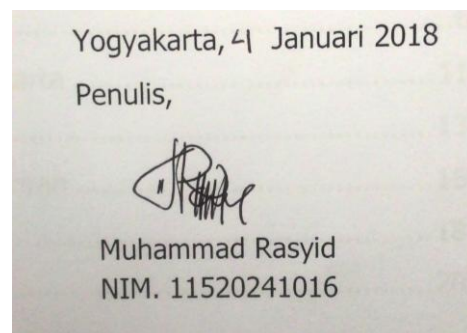 Yogyakarta, 4 Januari 2018
Penulis,
Muhammad Rasyid
NIM. 11520241016